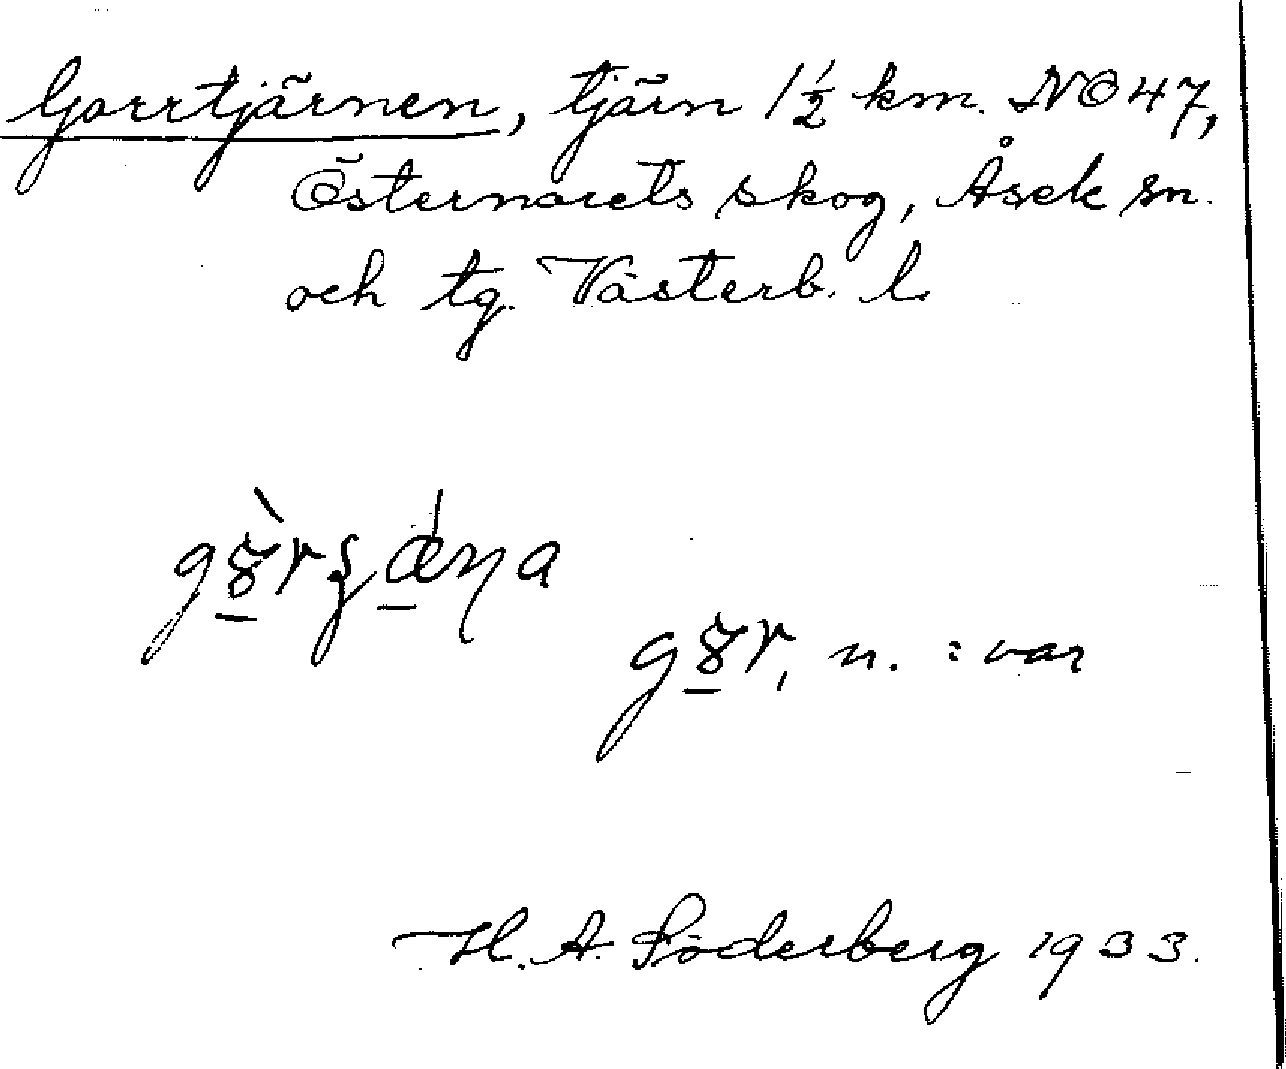 Gorrtjärnen, tjärn 1½ km. NO 47,
Östernorets skog, Åsele sn.
och tg. Västerb. l.
gȣ̀r, n. = var
H. A. Söderberg 1933.